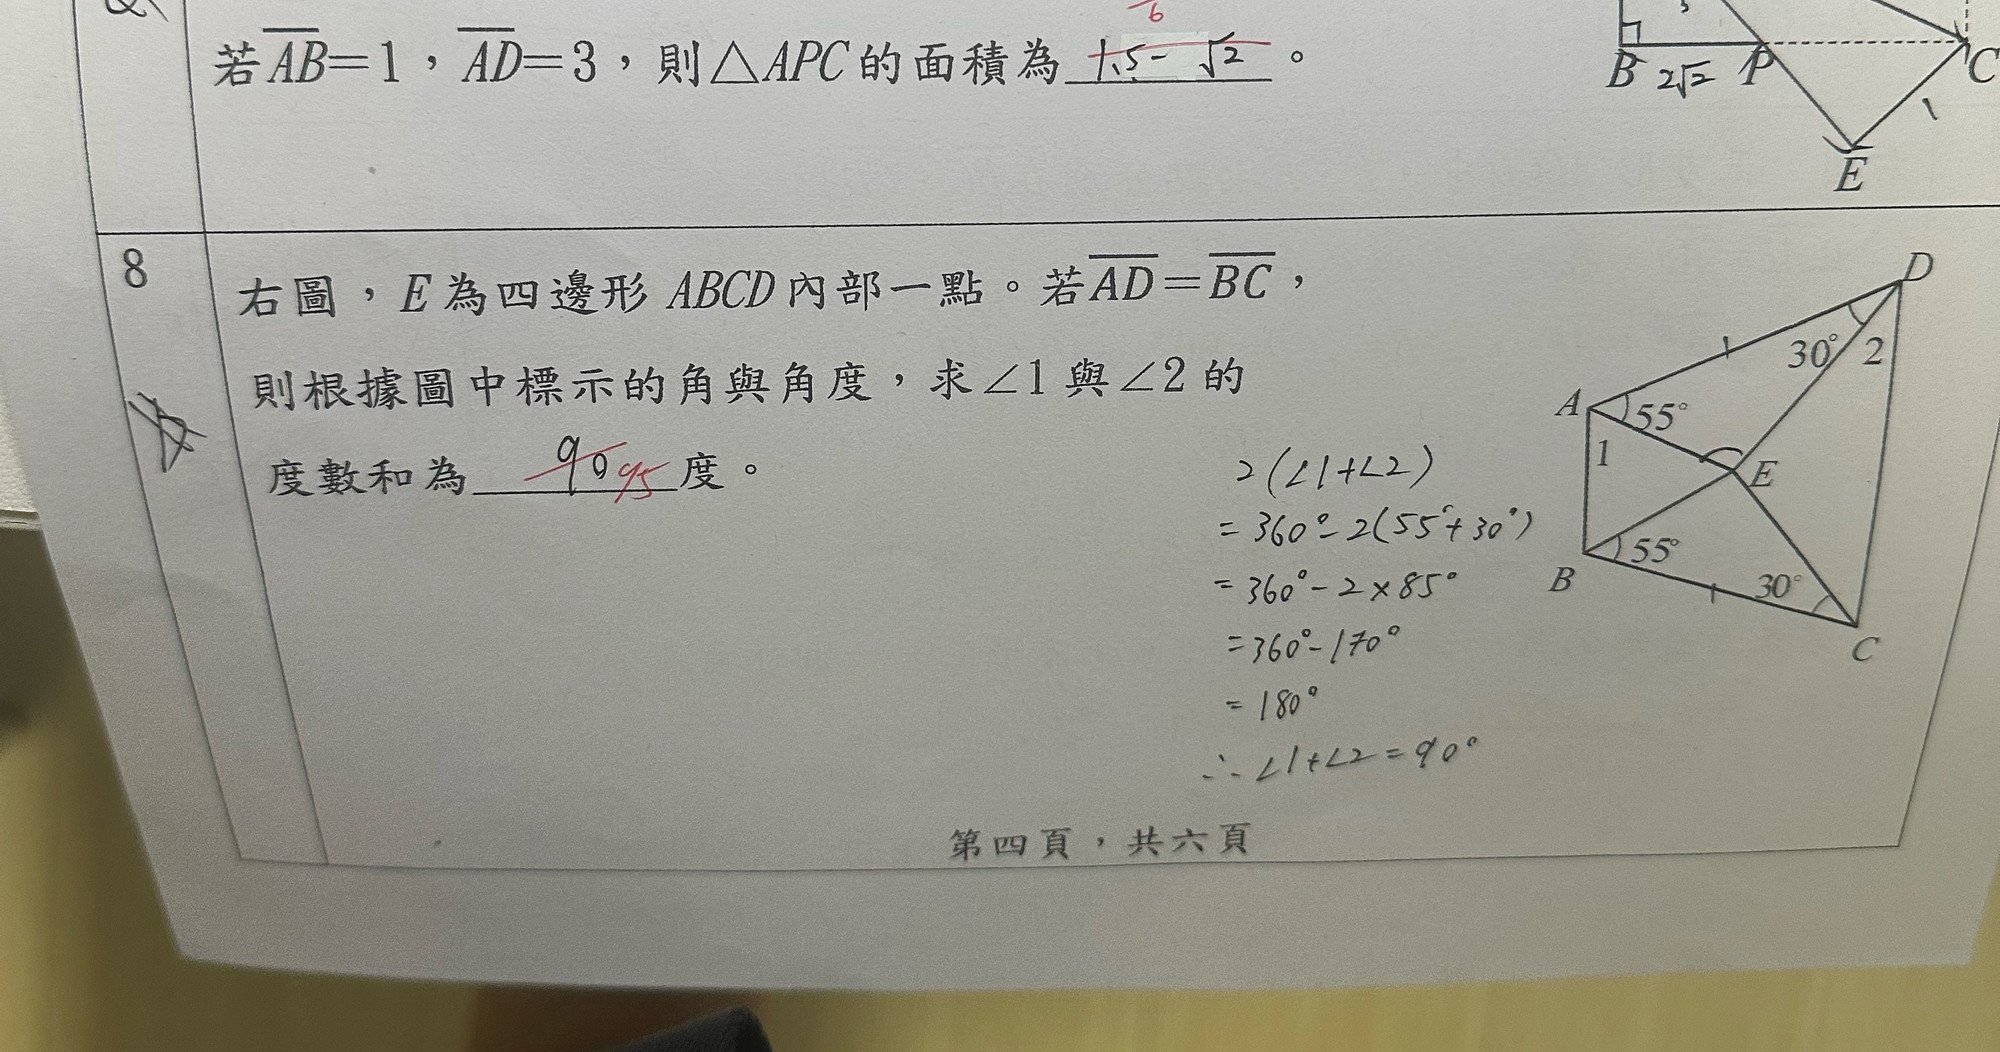 6
若AB=1，AD=3，則△APC的面積為 1.5-√2 。
B 2√2 P C
1
E
8
右圖，E為四邊形ABCD內部一點。若AD=BC，
則根據圖中標示的角與角度，求∠1與∠2的
度數和為 90 95 度。
D
30° 2
A 55°
1
E
B 55° 30°
C
2(∠1+∠2)
=360°-2(55°+30°)
=360°-2×85°
=360°-170°
=180°
∴∠1+∠2=90°
第四頁，共六頁